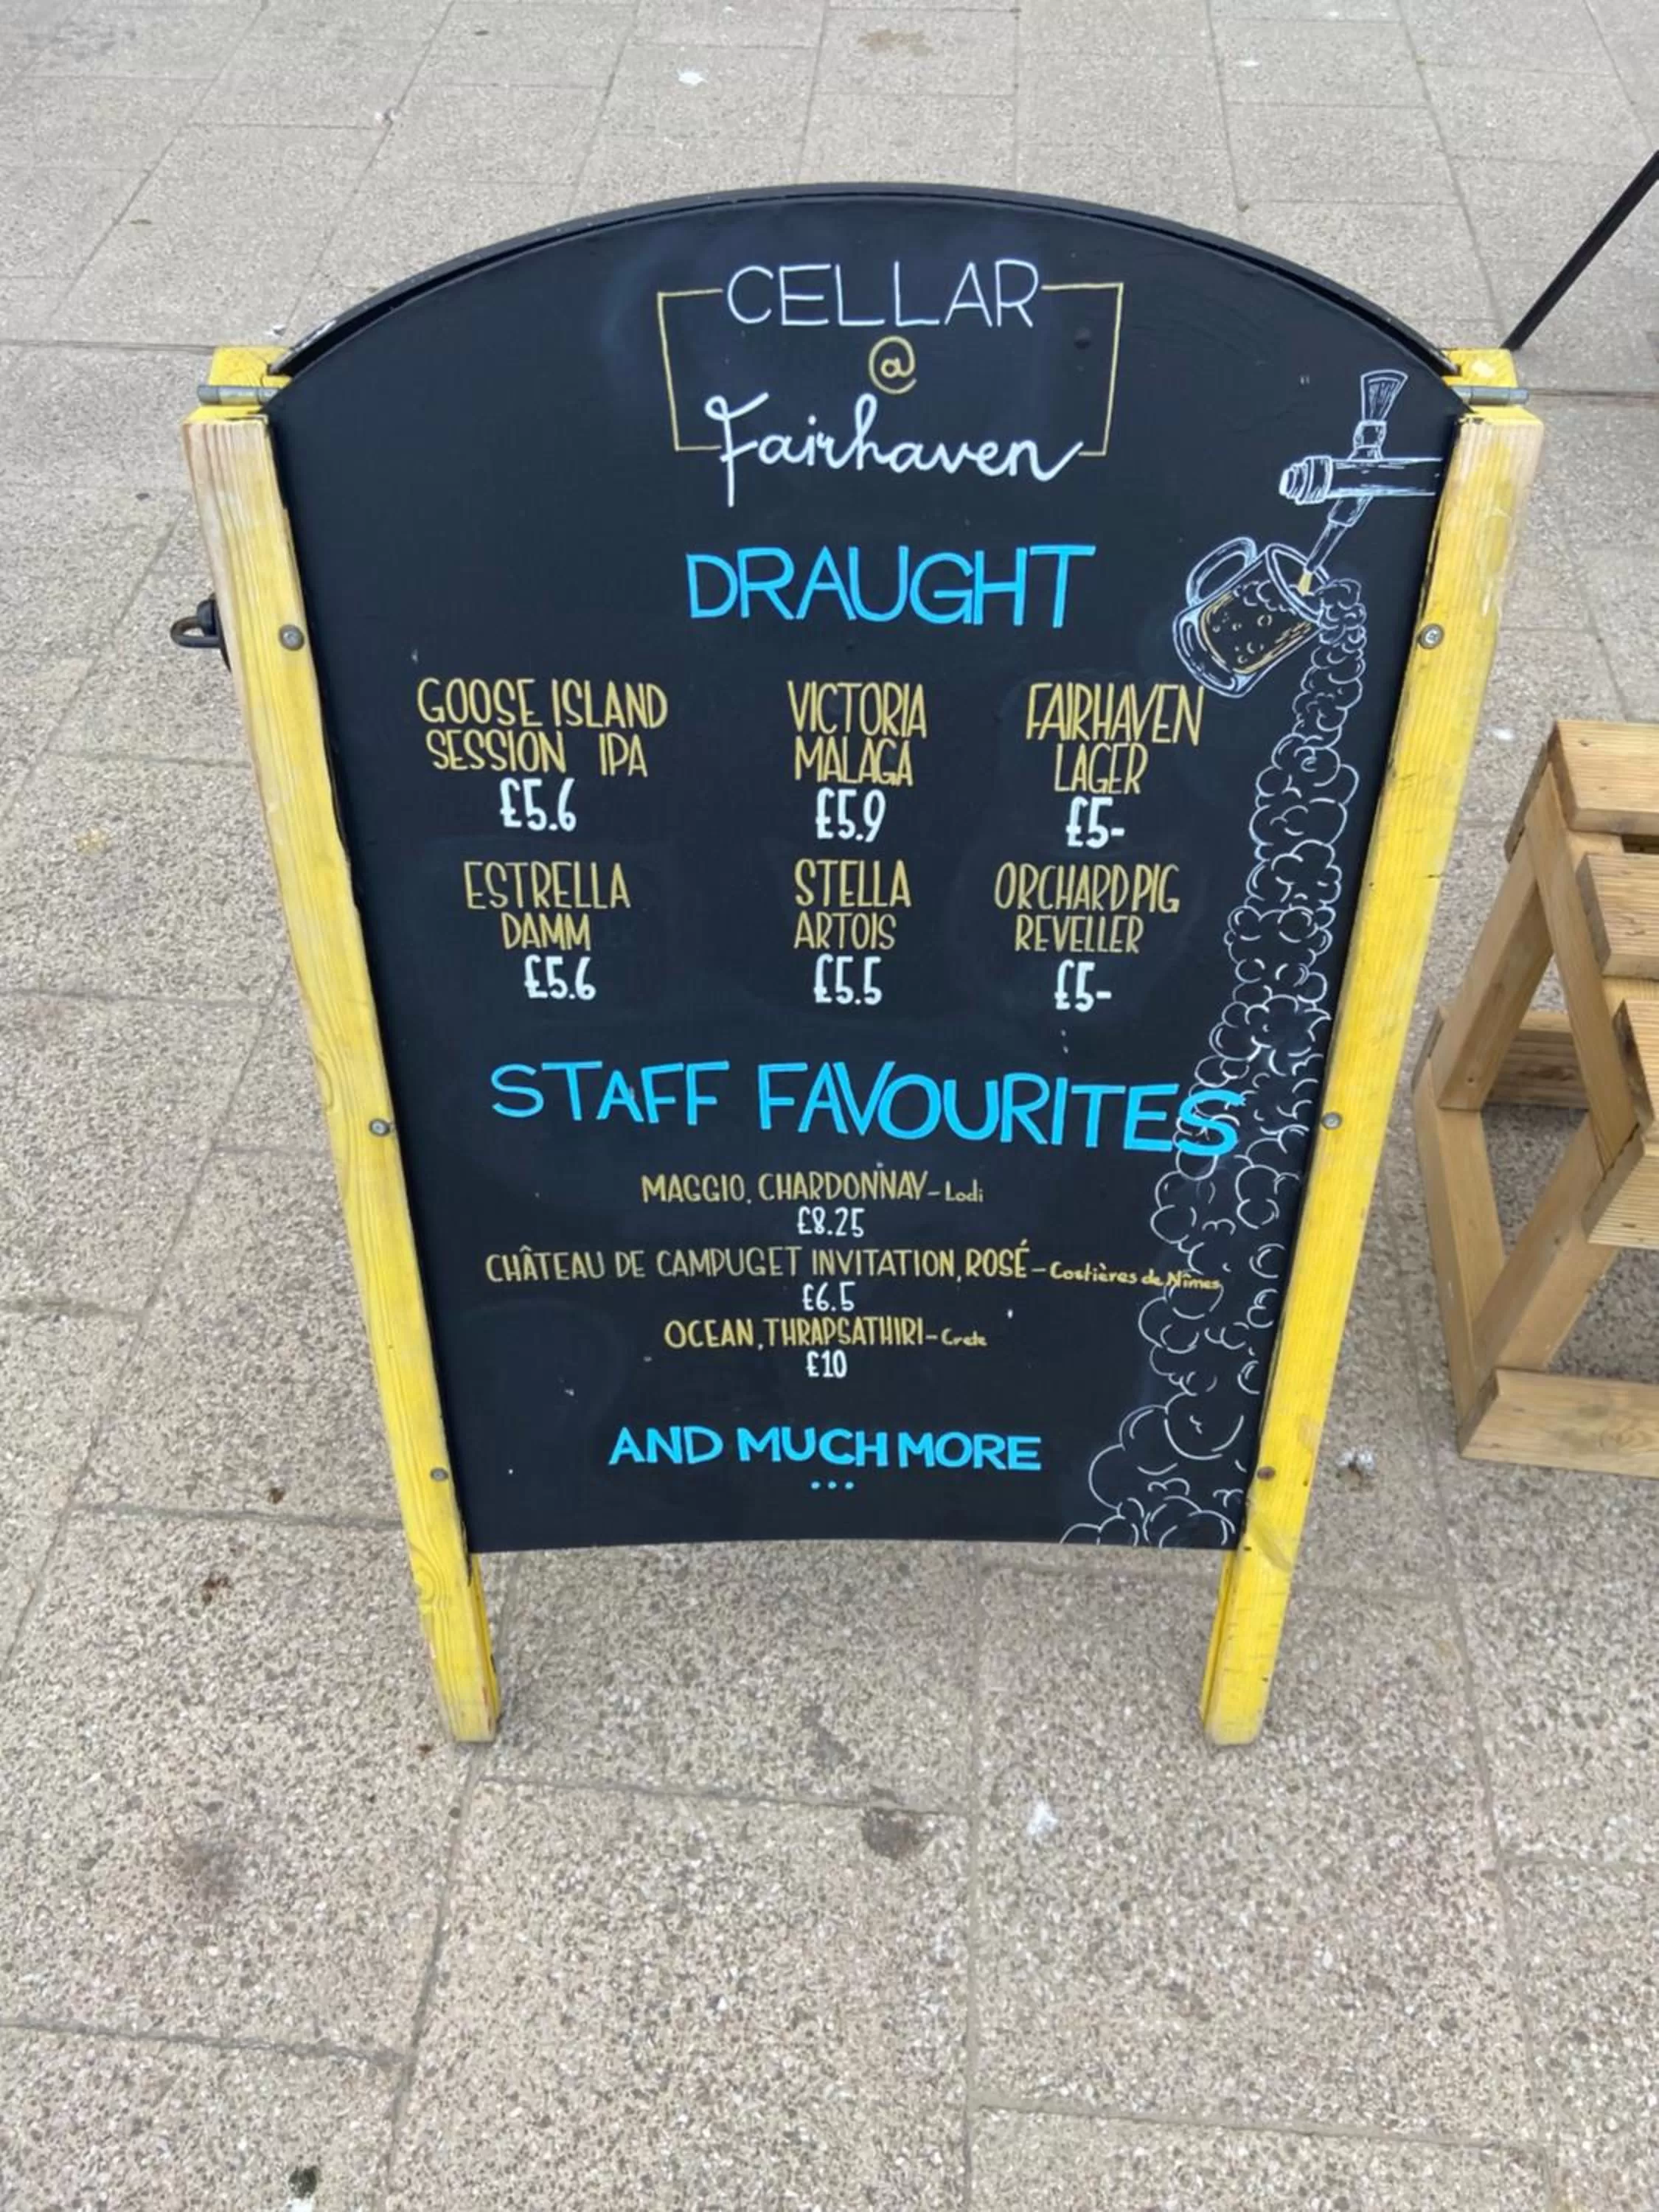 CELLAR
@
Fairhaven
DRAUGHT
GOOSE ISLAND
SESSION IPA
£5.6
VICTORIA
MALAGA
£5.9
FAIRHAVEN
LAGER
£5-
ESTRELLA
DAMM
£5.6
STELLA
ARTOIS
£5.5
ORCHARD PIG
REVELLER
£5-
STAFF FAVOURITES
MAGGIO, CHARDONNAY - Lodi
£8.25
CHÂTEAU DE CAMPUGET INVITATION, ROSÉ - Costières de Nîmes
£6.5
OCEAN, THRAPSATHIRI - Crete
£10
AND MUCH MORE
...